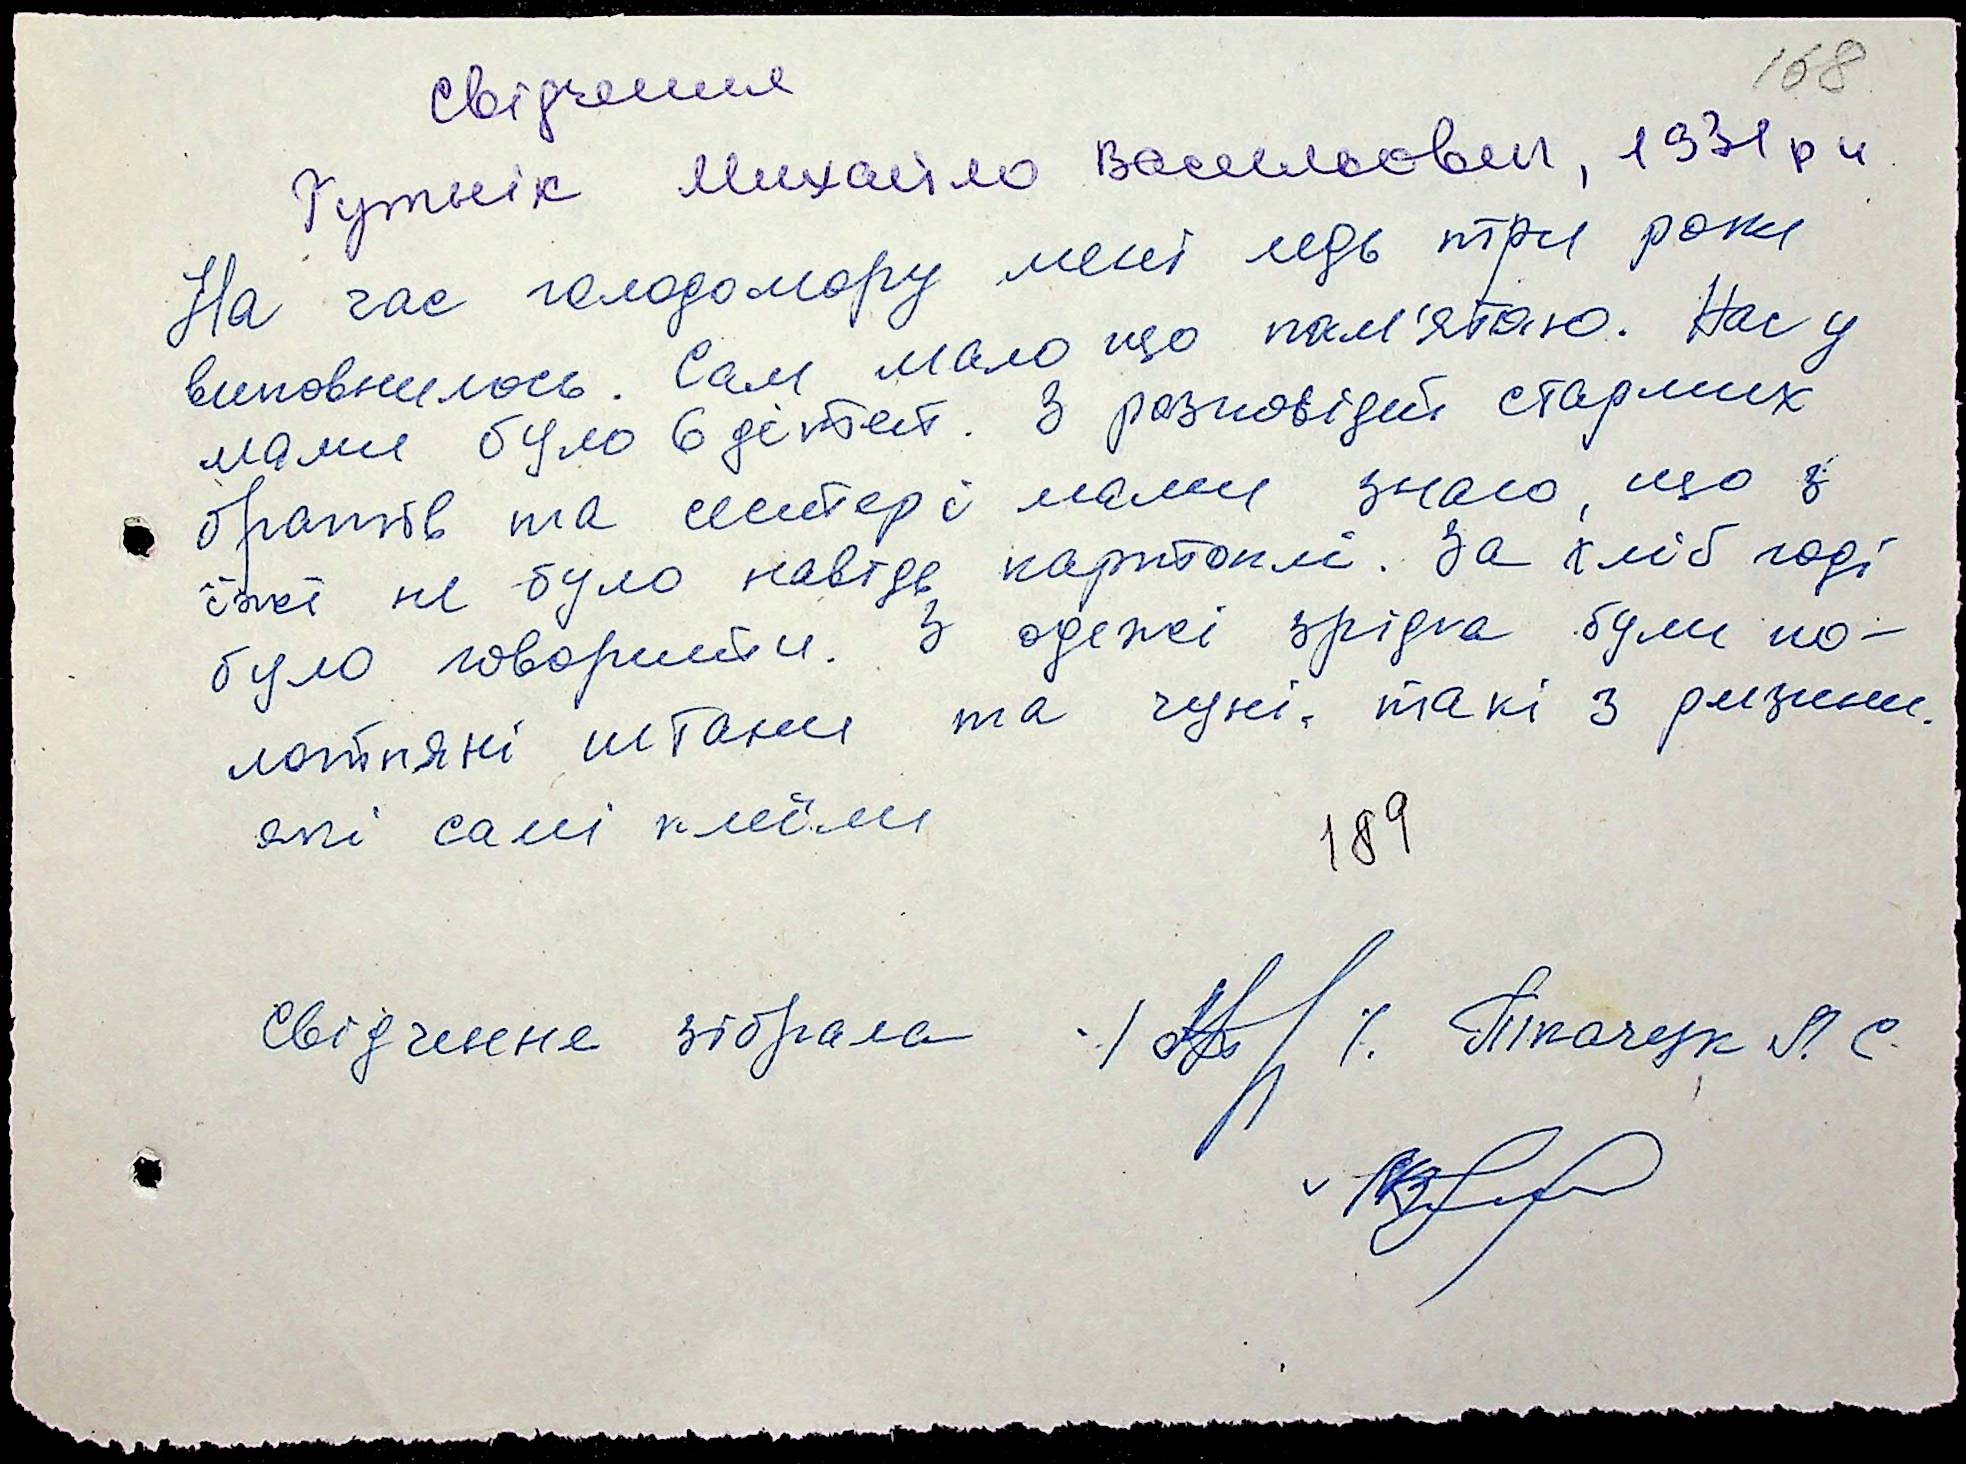 168
Свідчення
Кутнік Михайло Васильович, 1931 р н
На час голодомору мені ледь три роки
виповнилось. Сам мало що пам'ятаю. Нас у
мами було 6 дітей. З розповідей старших
братів та сестер і мами знаю, що з
їжі не було навідь картоплі. За хліб годі
було говорити. З одежі зрідка були по-
лотняні штани та чуні, такі з ризини.
які самі клеїли
189
Свідчення зібрала /. Ткачук Л. С.